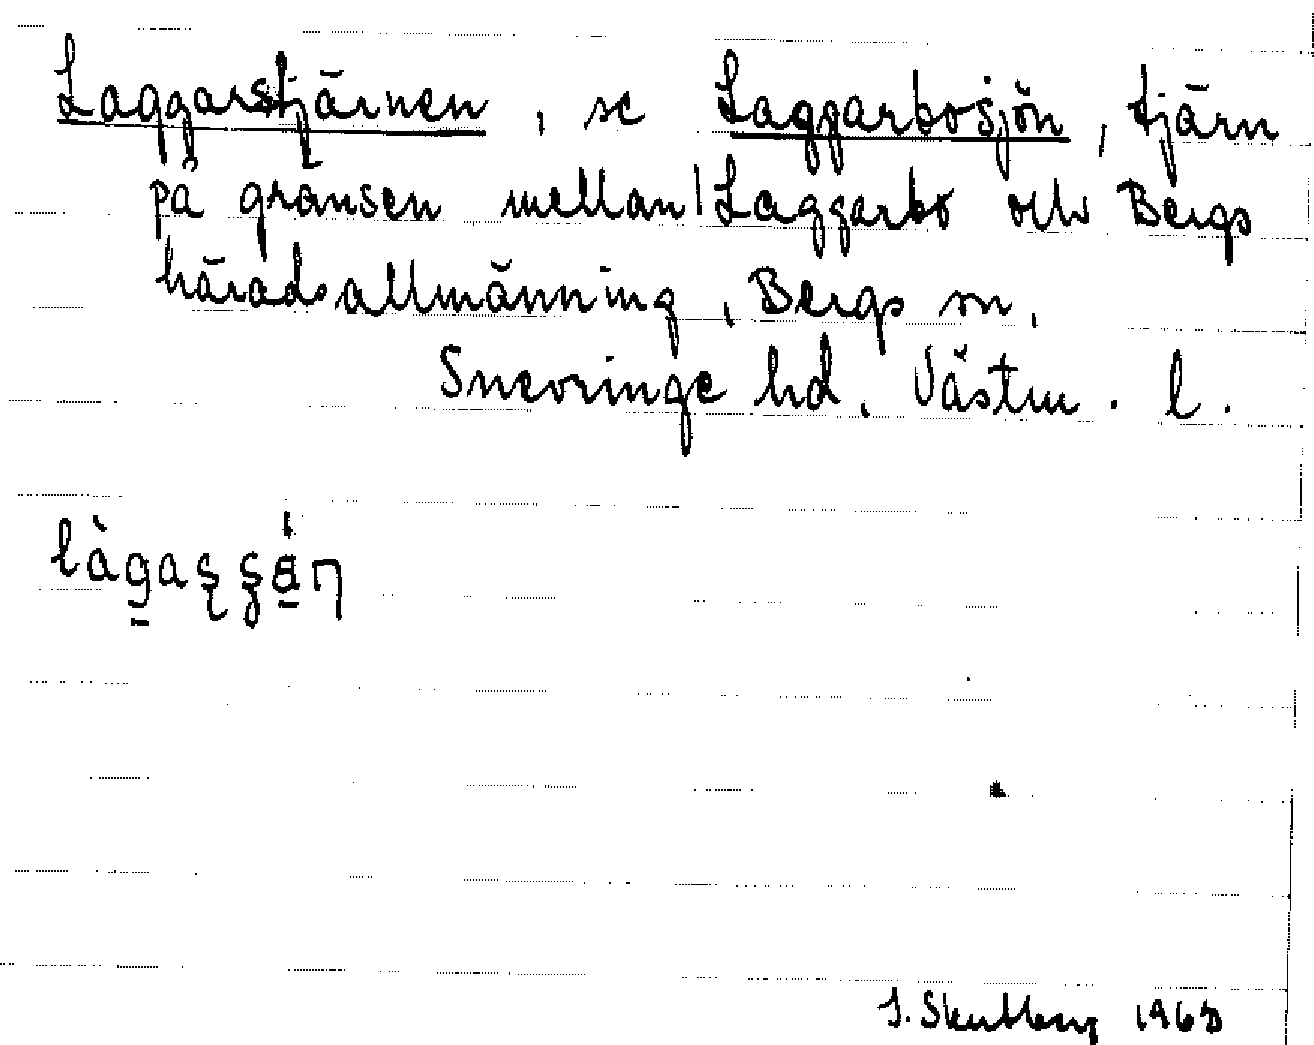 Laggarstjärnen, se Laggarbosjön, tjärn
på gränsen mellan Laggarbo och Bergs
häradsallmänning, Bergs sn,
Snevringe hd. Västm. l.
1963